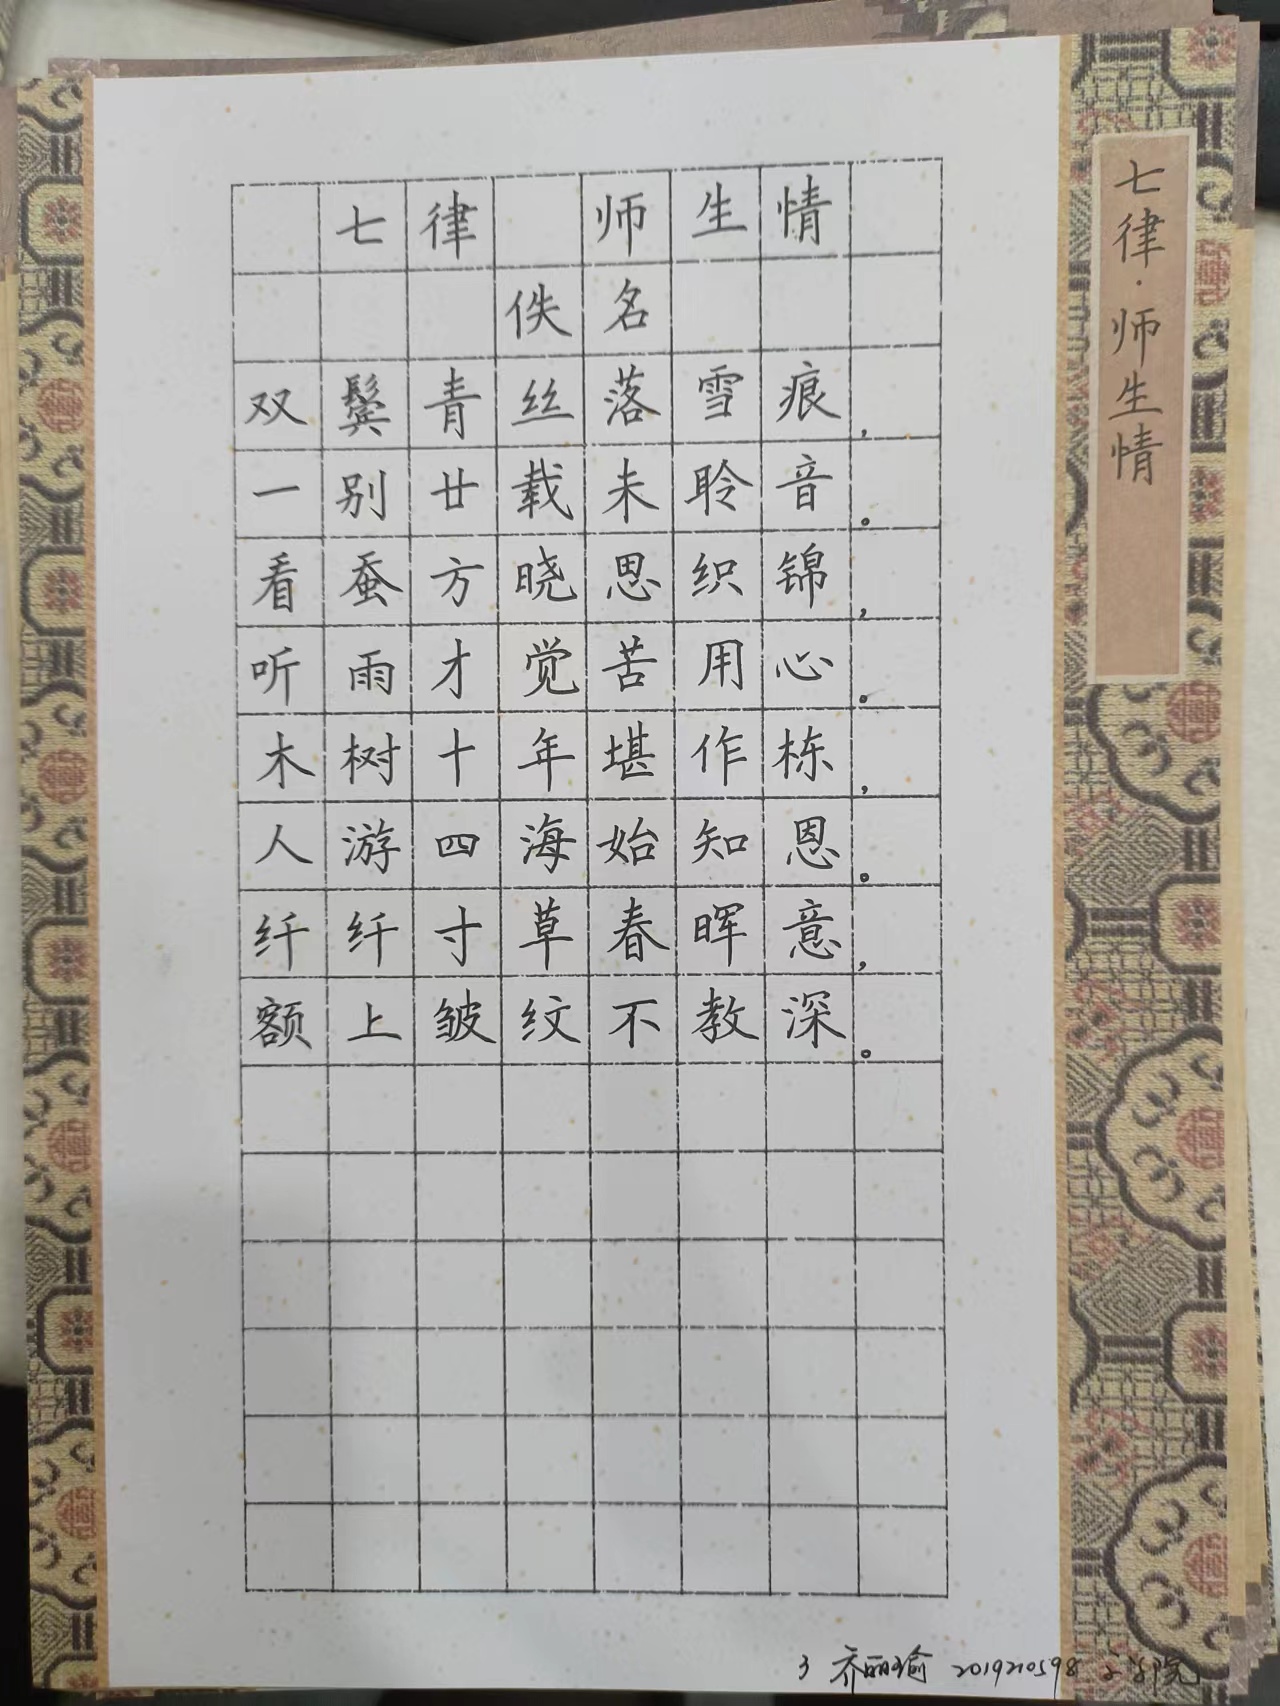 七律 师生情
佚名
双鬓青丝落雪痕，
一别廿载未聆音。
看蚕方晓思织锦，
听雨才觉苦用心。
木树十年堪作栋，
人游四海始知恩。
纤纤寸草春晖意，
额上皱纹不教深。
七律·师生情
3 乔丽瑜 2019210598 文学院